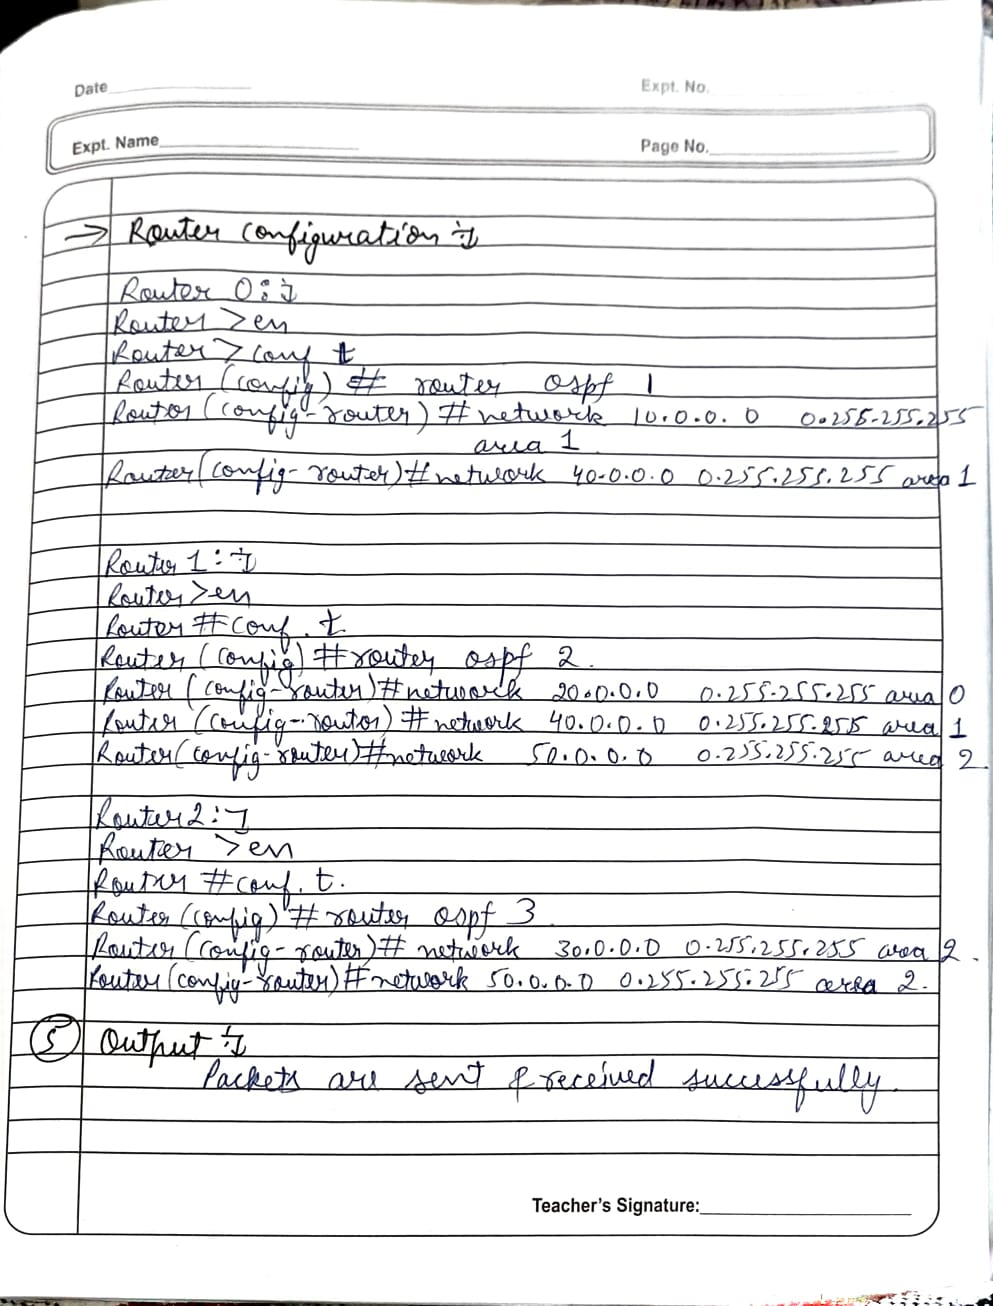 Date
Expt. No.
Expt. Name
Page No.
→ Router configuration :-
Router 0 :-
Router >en
Router > conf t
Router (config) # router ospf 1
Router (config-router) # network 10.0.0.0 0.255.255.255
area 1
Router(config-router)#network 40.0.0.0 0.255.255.255 area 1
Router 1 :-
Router >en
Router #conf. t
Router (config) #router ospf 2.
Router (config-router)#network 20.0.0.0 0.255.255.255 area 0
Router (config-router) #network 40.0.0.0 0.255.255.255 area 1
Router(config-router)#network 50.0.0.0 0.255.255.255 area 2
Router 2 :-
Router >en
Router #conf. t.
Router (config) # router ospf 3
Router (config-router)# network 30.0.0.0 0.255.255.255 area 2.
Router (config-router)#network 50.0.0.0 0.255.255.255 area 2.
5 Output :-
Packets are sent & received successfully.
Teacher's Signature: